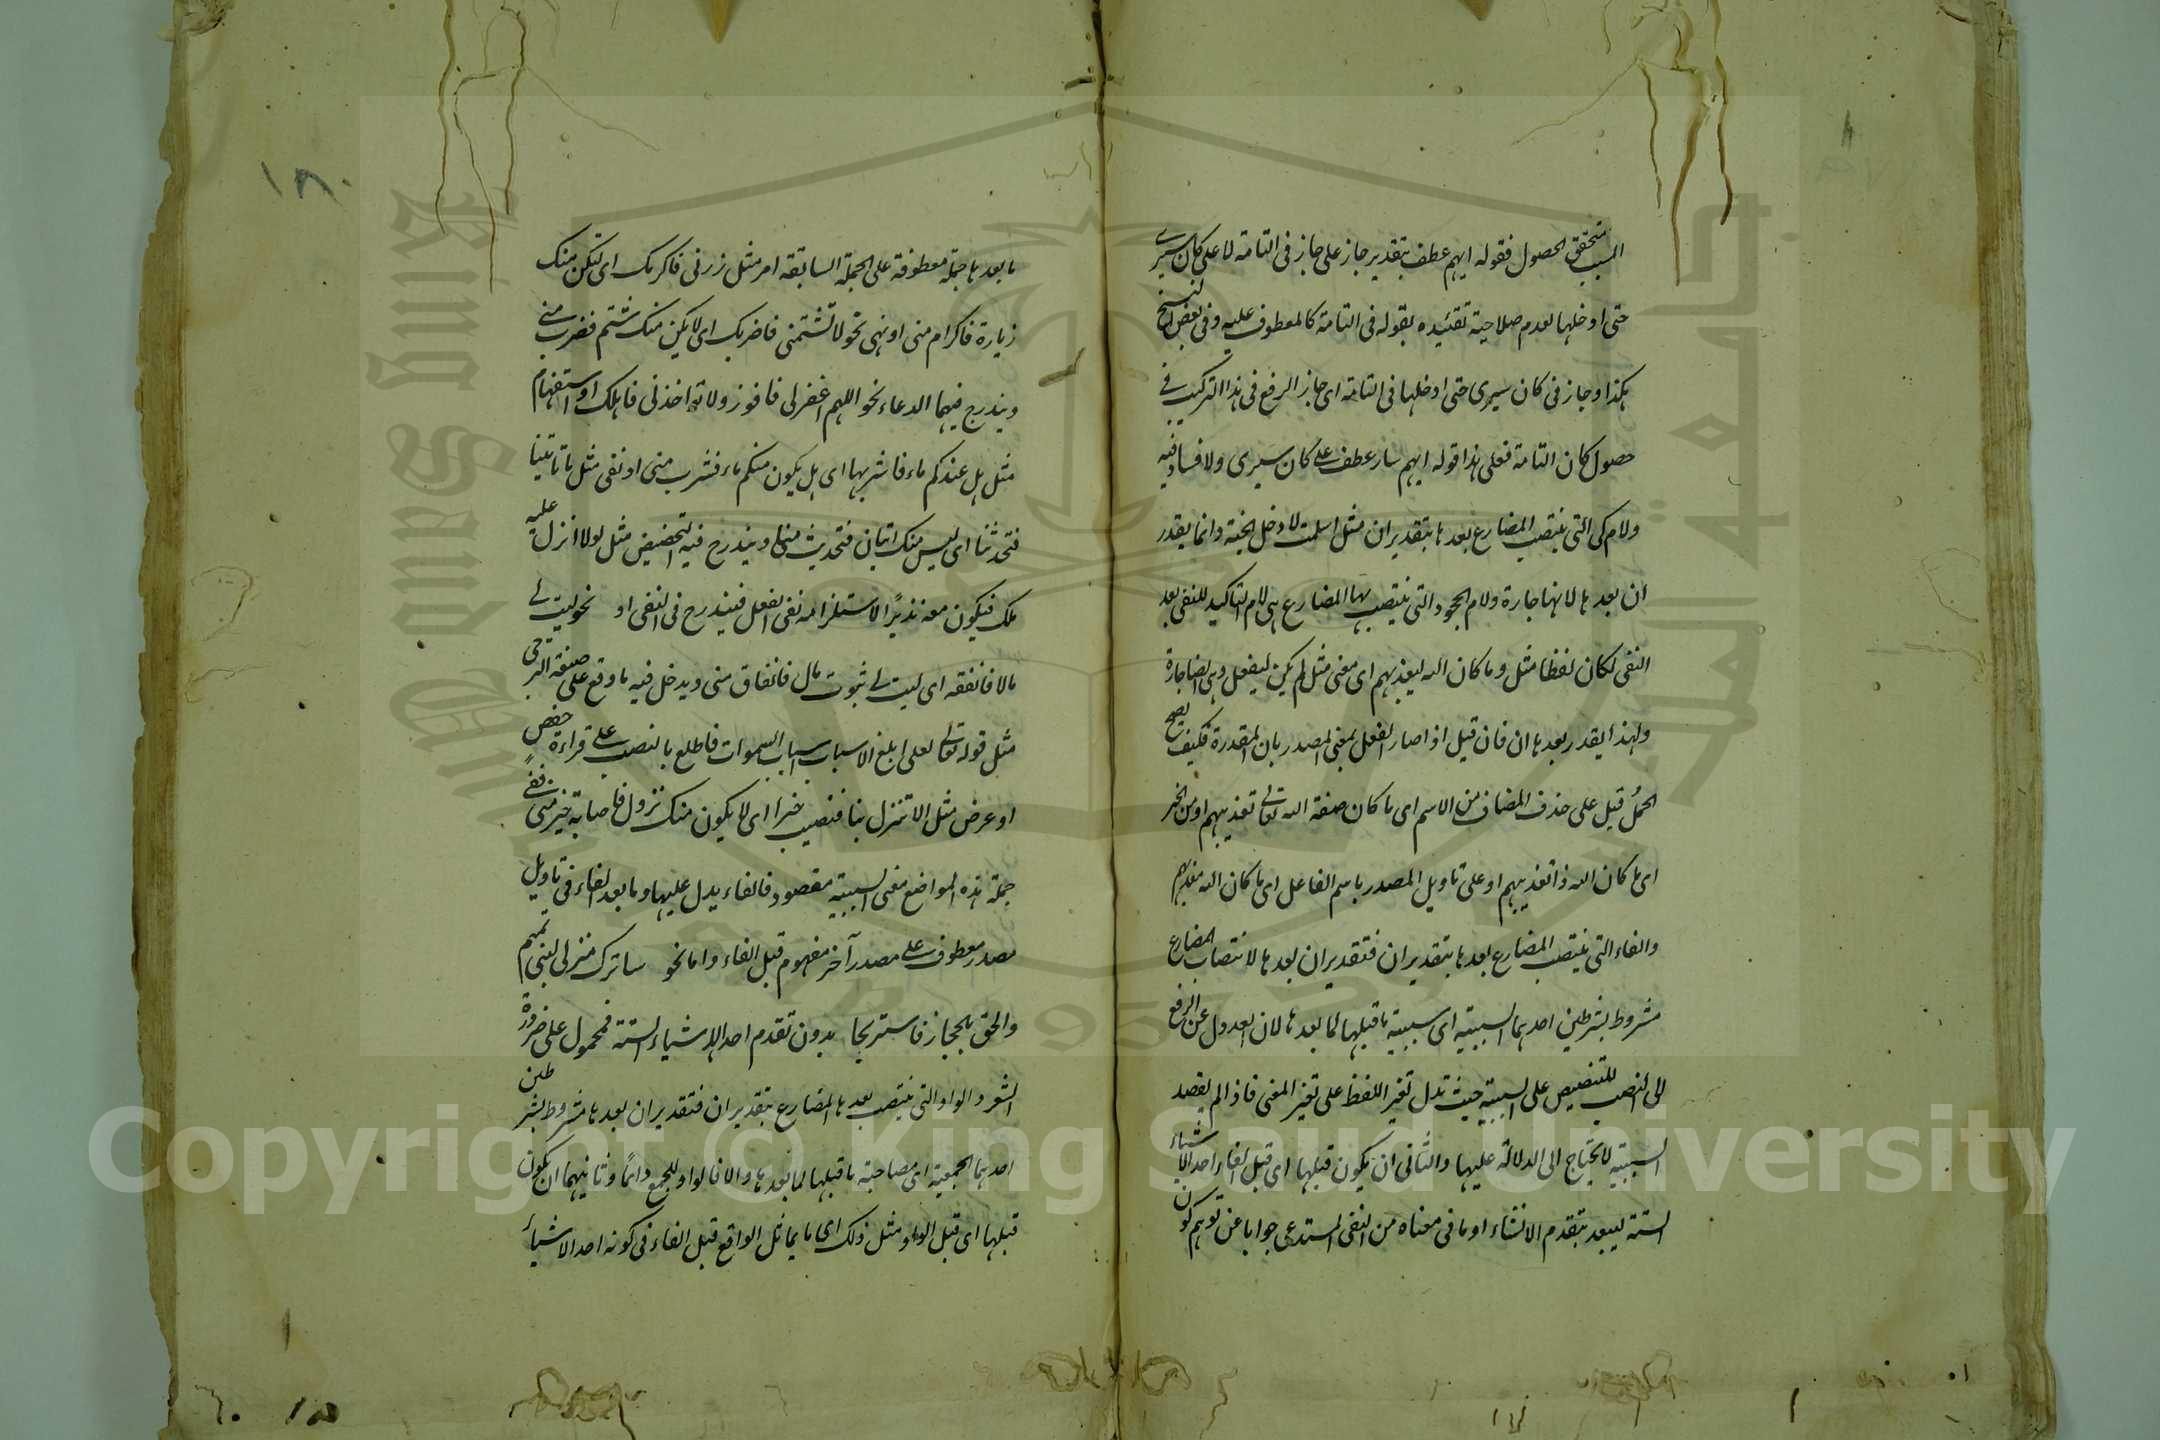 المسبب متحقق الحصول فقوله ايهم عطف بتقدير جاز على جاز فى التامة لا على كان سيرى
حتى ادخلها لعدم صلاحية تقئيده بقوله فى التامة كالمعطوف عليه وفى بعض النسخ
هكذا وجاز فى كان سيرى حتى ادخلها فى التامة اى جاز الرفع فى هذا التركيب فى
حصول كان التامة فعلى هذا قوله ايهم سار عطف على كان سيرى ولا فساد فيه
ولام كى التى ينتصب المضارع بعدها بتقدير ان مثل اسلمت لادخل الجنة وانما يقدر
ان بعدها لانها جارة ولام الجحود التى ينتصب بها المضارع هى لام التاكيد للنفى بعد
النفى لكان لفظا مثل وما كان الله ليعذبهم اى معنى مثل لم يكن ليفعل وهى ايضا جارة
ولهذا يقدر بعدها ان فان قيل اذا صار الفعل بمعنى المصدر بان المقدرة فكيف يصح
الحمل قيل على حذف المضاف من الاسم اى ما كان صفة الله تعالى تعذيبهم او من الخبر
اى ما كان الله ذا تعذيبهم او على تاويل المصدر باسم الفاعل اى ما كان الله معذبهم
والفاء التى ينتصب المضارع بعدها بتقدير ان فتقدير ان بعدها لانتصاب المضارع
مشروط بشرطين احدهما السببية اى سببية ما قبلها لما بعدها لان العدول عن الرفع
الى النصب للتنصيص على السببية حيث تدل تغير اللفظ على تغير المعنى فاذا لم يقصد
السببية لا يحتاج الى الدلالة عليها والثانى ان يكون قبلها اى قبل الفاء احد الاشياء
الستة ليبعد بتقدم الانشاء او ما فى معناه من النفى المستدعى جوابا عن توهم كون
ما بعدها جملة معطوفة على الجملة السابقة امر مثل زرنى فاكرمك اى لتكن منك
زيارة فاكرام منى او نهى نحو لا تشتمنى فاضربك اى لا يكن منك شتم فضرب منى
ويندرج فيهما الدعاء نحو اللهم اغفر لى فافوز ولا تؤاخذنى فاهلك او استفهام
مثل هل عندكم ماء فاشربها اى هل يكون منكم ماء فشرب منى او نفى مثل ما تاتينا
فتحدثنا اى ليس منك اتيان فتحديث منا ويندرج فيه التحضيض مثل لولا انزل عليه
ملك فيكون معه نذيرًا لاستلزامه نفى الفعل فيندرج فى النفى او نحو ليت لى
مالا فانفقه اى ليت لى ثبوت مال فانفاق منى ويدخل فيه ما وقع على صيغة الترجى
مثل قوله تعالى لعلى ابلغ الاسباب اسباب السموات فاطلع بالنصب على قراءة حفص
او عرض مثل الا تنزل بنا فتصيب خيرا اى الا يكون منك نزول فاصابة خير منى ففى
جملة هذه المواضع معنى السببية مقصود فالفاء يدل عليها وما بعد الفاء فى تاويل
مصدر معطوف على مصدر آخر مفهوم قبل الفاء واما نحو ساترك منزلى لبنى تميم
والحق بالحجاز فاستريحا بدون تقدم احد الاشياء الستة فمحمول على ضرورة
الشعر والواو التى ينتصب بعدها المضارع بتقدير ان فتقدير ان بعدها مشروط بشرطين
احدهما الجمعية اى مصاحبة ما قبلها لما بعدها والا فالواو للجمع دائمًا وثانيهما ان يكون
قبلها اى قبل الواو مثل ذلك اى ما يماثل الواقع قبل الفاء فى كونه احد الاشياء
١٨٠
Copyright © King Saud University
جامعة الملك سعود
King Saud University
1957